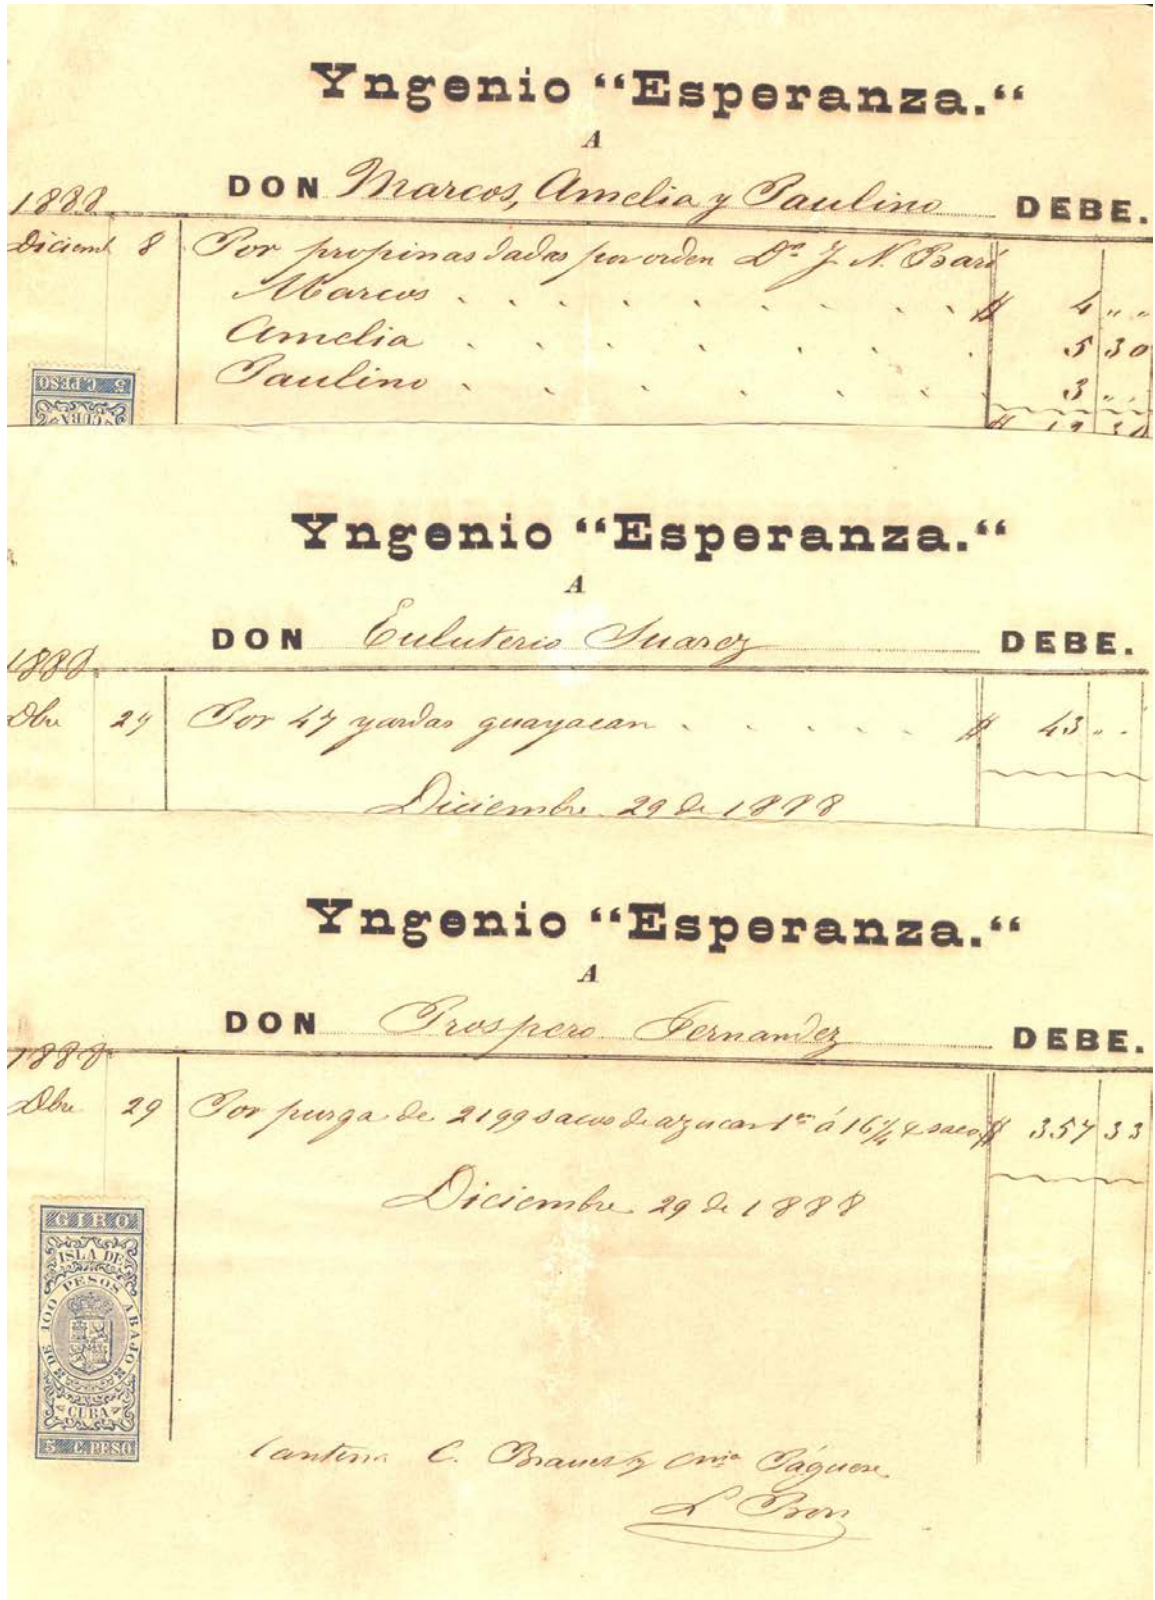 Yngenio “Esperanza.“
A
1888 DON Marcos, Amelia y Paulino DEBE.
Diciemb 8 Por propinas dadas por orden Dn J. N. Bari
Marcos . . . . . . . . $ 4 " "
Amelia . . . . . . . 5 30
Paulino . . . . . . 3 " "
5 C. PESO
CUBA
$ 12 30
Yngenio “Esperanza.“
A
1888 DON Euluterio Suarez DEBE.
Dbre 27 Por 47 yardas guayacan . . . . . $ 43 " "
Diciembre 29 de 1888
Yngenio “Esperanza.“
A
1888 DON Prospero Fernandez DEBE.
Dbre 29 Por purga de 2199 sacos de azucar 1ra á 16¼ ¢ saco $ 357 33
Diciembre 29 de 1888
GIRO
ISLA DE
DE 100 PESOS ABAJO
CUBA
5 C. PESO
C. Páguese